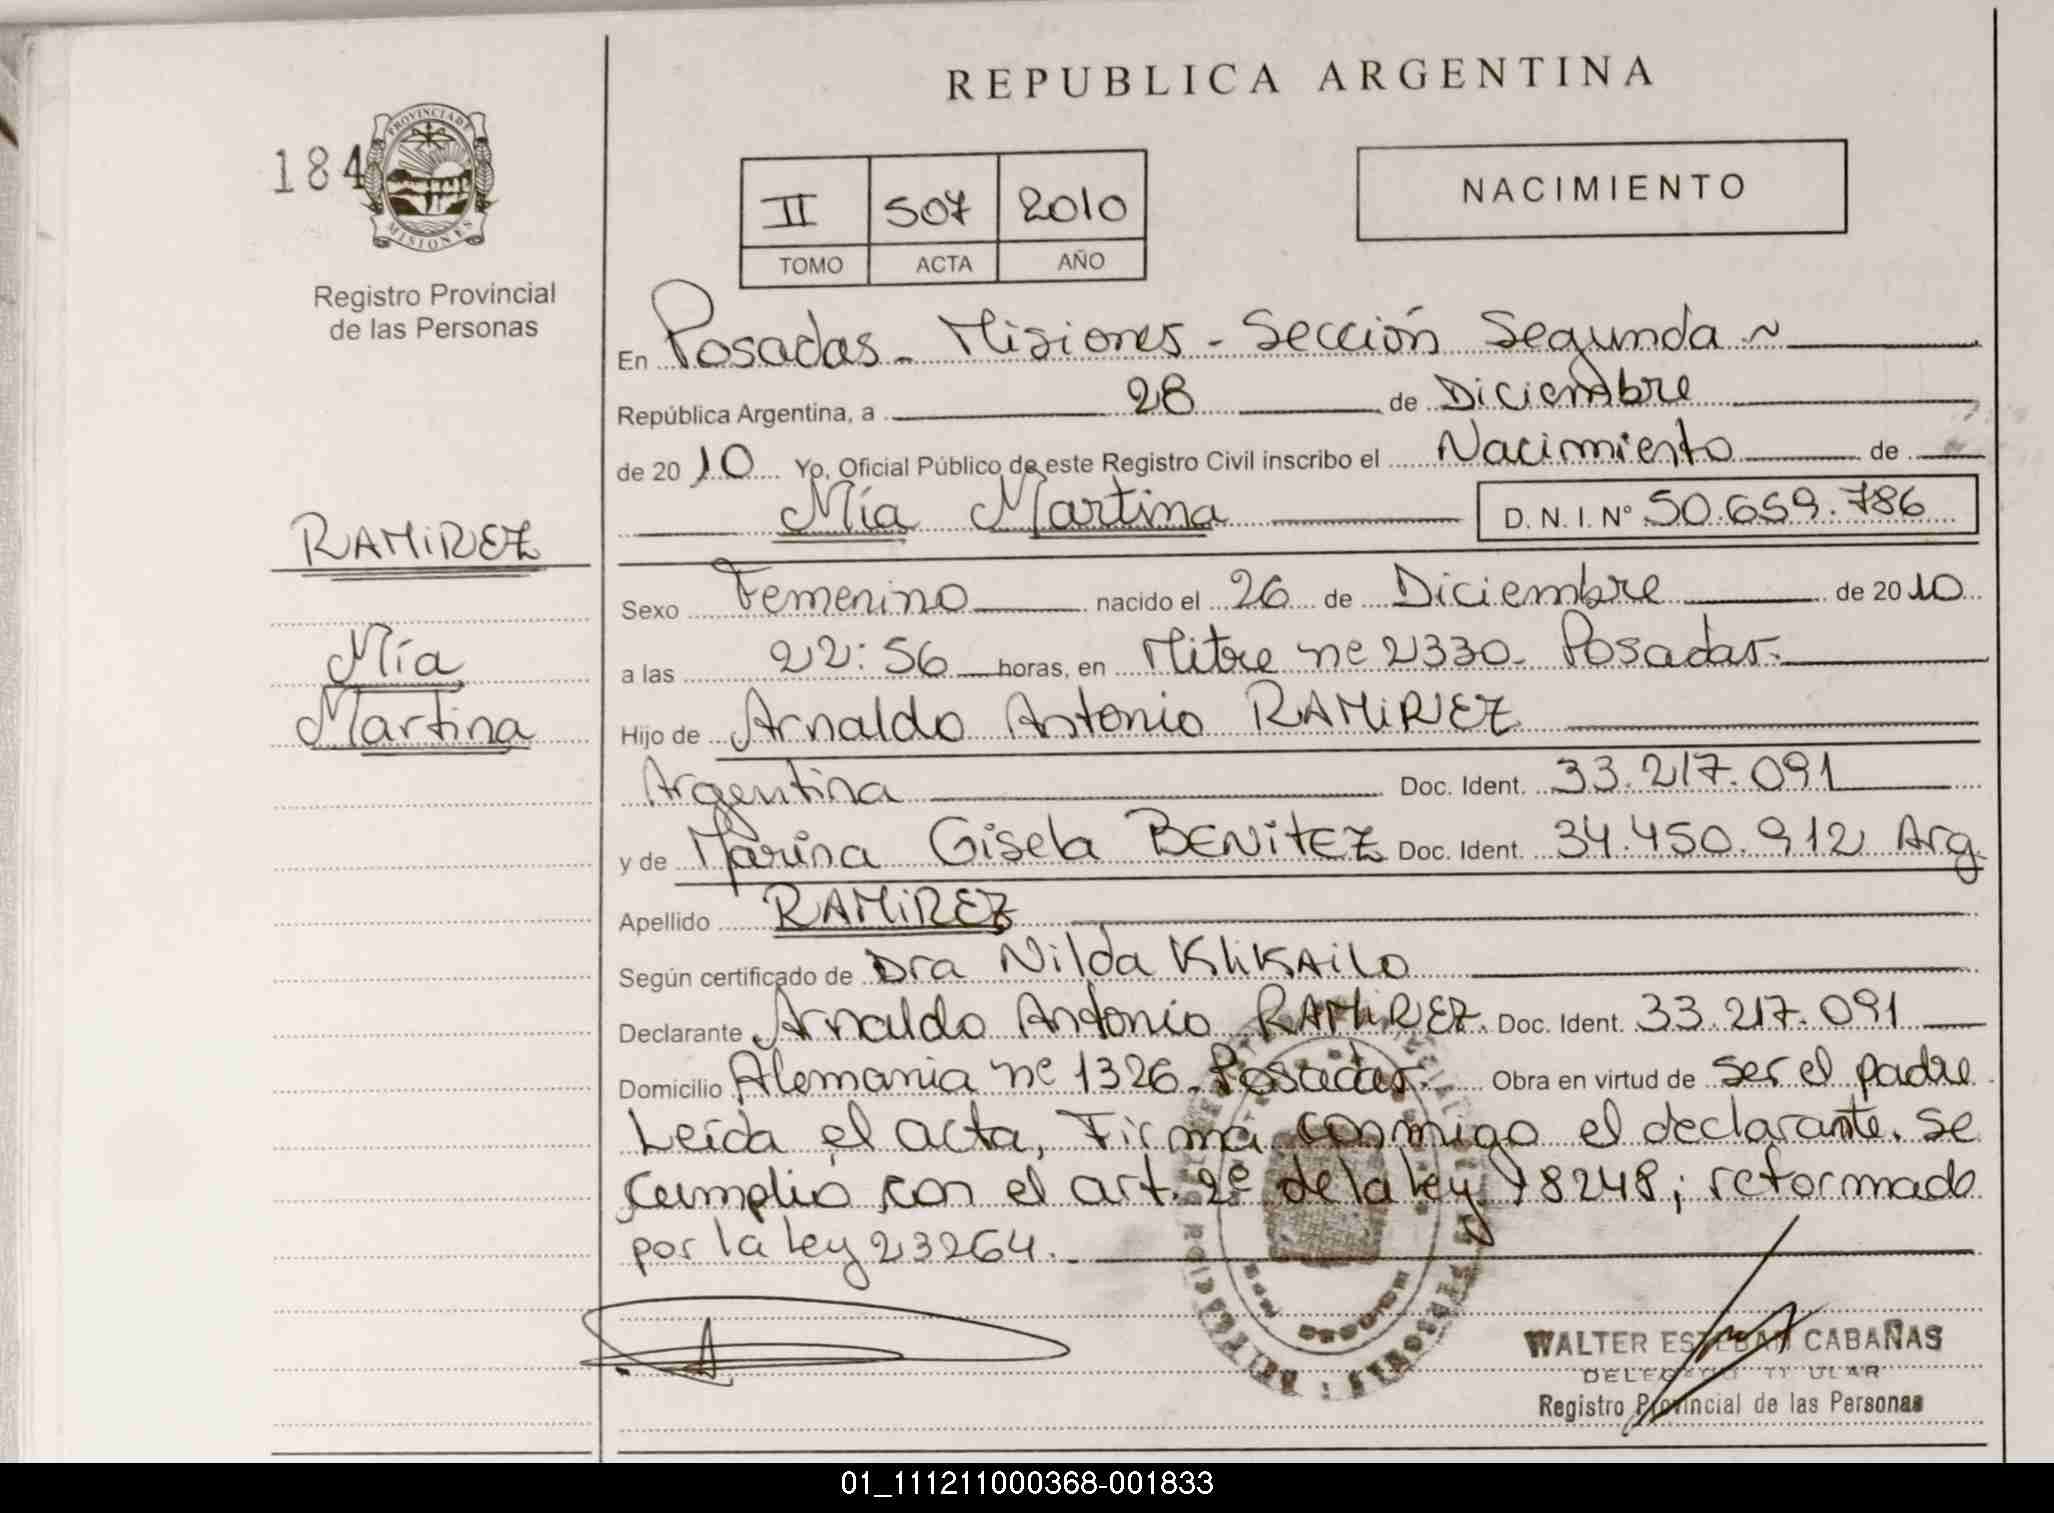 REPUBLICA ARGENTINA
184
PROVINCIA DE
MISIONES
Registro Provincial
de las Personas
II 507 2010
TOMO ACTA AÑO
NACIMIENTO
En Posadas - Misiones - Sección Segunda
República Argentina, a 28 de Diciembre
de 2010 Yo, Oficial Público de este Registro Civil inscribo el Nacimiento de
Mía Martina D. N. I. Nº 50.659.786
RAMIREZ
Mía
Martina
Sexo Femenino nacido el 26 de Diciembre de 2010
a las 22:56 horas, en Mitre nº 2330 - Posadas.
Hijo de Arnaldo Antonio RAMIREZ
Argentina Doc. Ident. 33.217.091
y de Marina Gisela BENITEZ Doc. Ident. 34.450.912 Arg.
Apellido RAMIREZ
Según certificado de Dra Nilda KliKAilo
Declarante Arnaldo Antonio RAMIREZ. Doc. Ident. 33.217.091
Domicilio Alemania nº 1326 - Posadas. Obra en virtud de ser el padre
Leída el acta, Firma conmigo el declarante. Se
cumplió con el art. 2º de la Ley 18248; reformado
por la Ley 23264.
WALTER ESTEBAN CABAÑAS
DELEGADO TITULAR
Registro Provincial de las Personas
01_111211000368-001833